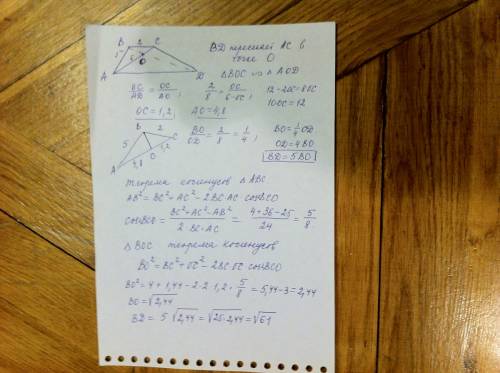 B 2 C
5 6 O
A D
BD пересекает AC в
точке O
△BOC ∼ △AOD
BC/AD = OC/AO ; 2/8 = OC/(6-OC) ; 12-2OC=8OC
10OC=12
OC=1,2 AO=4,8
B 2 C
5 O 1,2
A 4,8
BO/OD = 2/8 = 1/4 ; BO=1/4 OD
OD=4BO
BD=5BO
теорема косинусов △ABC
AB²=BC²+AC²-2BC·AC·cosBCO
cosBCO = (BC²+AC²-AB²)/(2·BC·AC) = (4+36-25)/24 = 5/8
△BOC теорема косинусов
BO²=BC²+OC²-2BC·OC·cosBCO
BO²=4+1,44-2·2·1,2·5/8=5,44-3=2,44
BO=√2,44
BD= 5√2,44=√25·2,44=√61